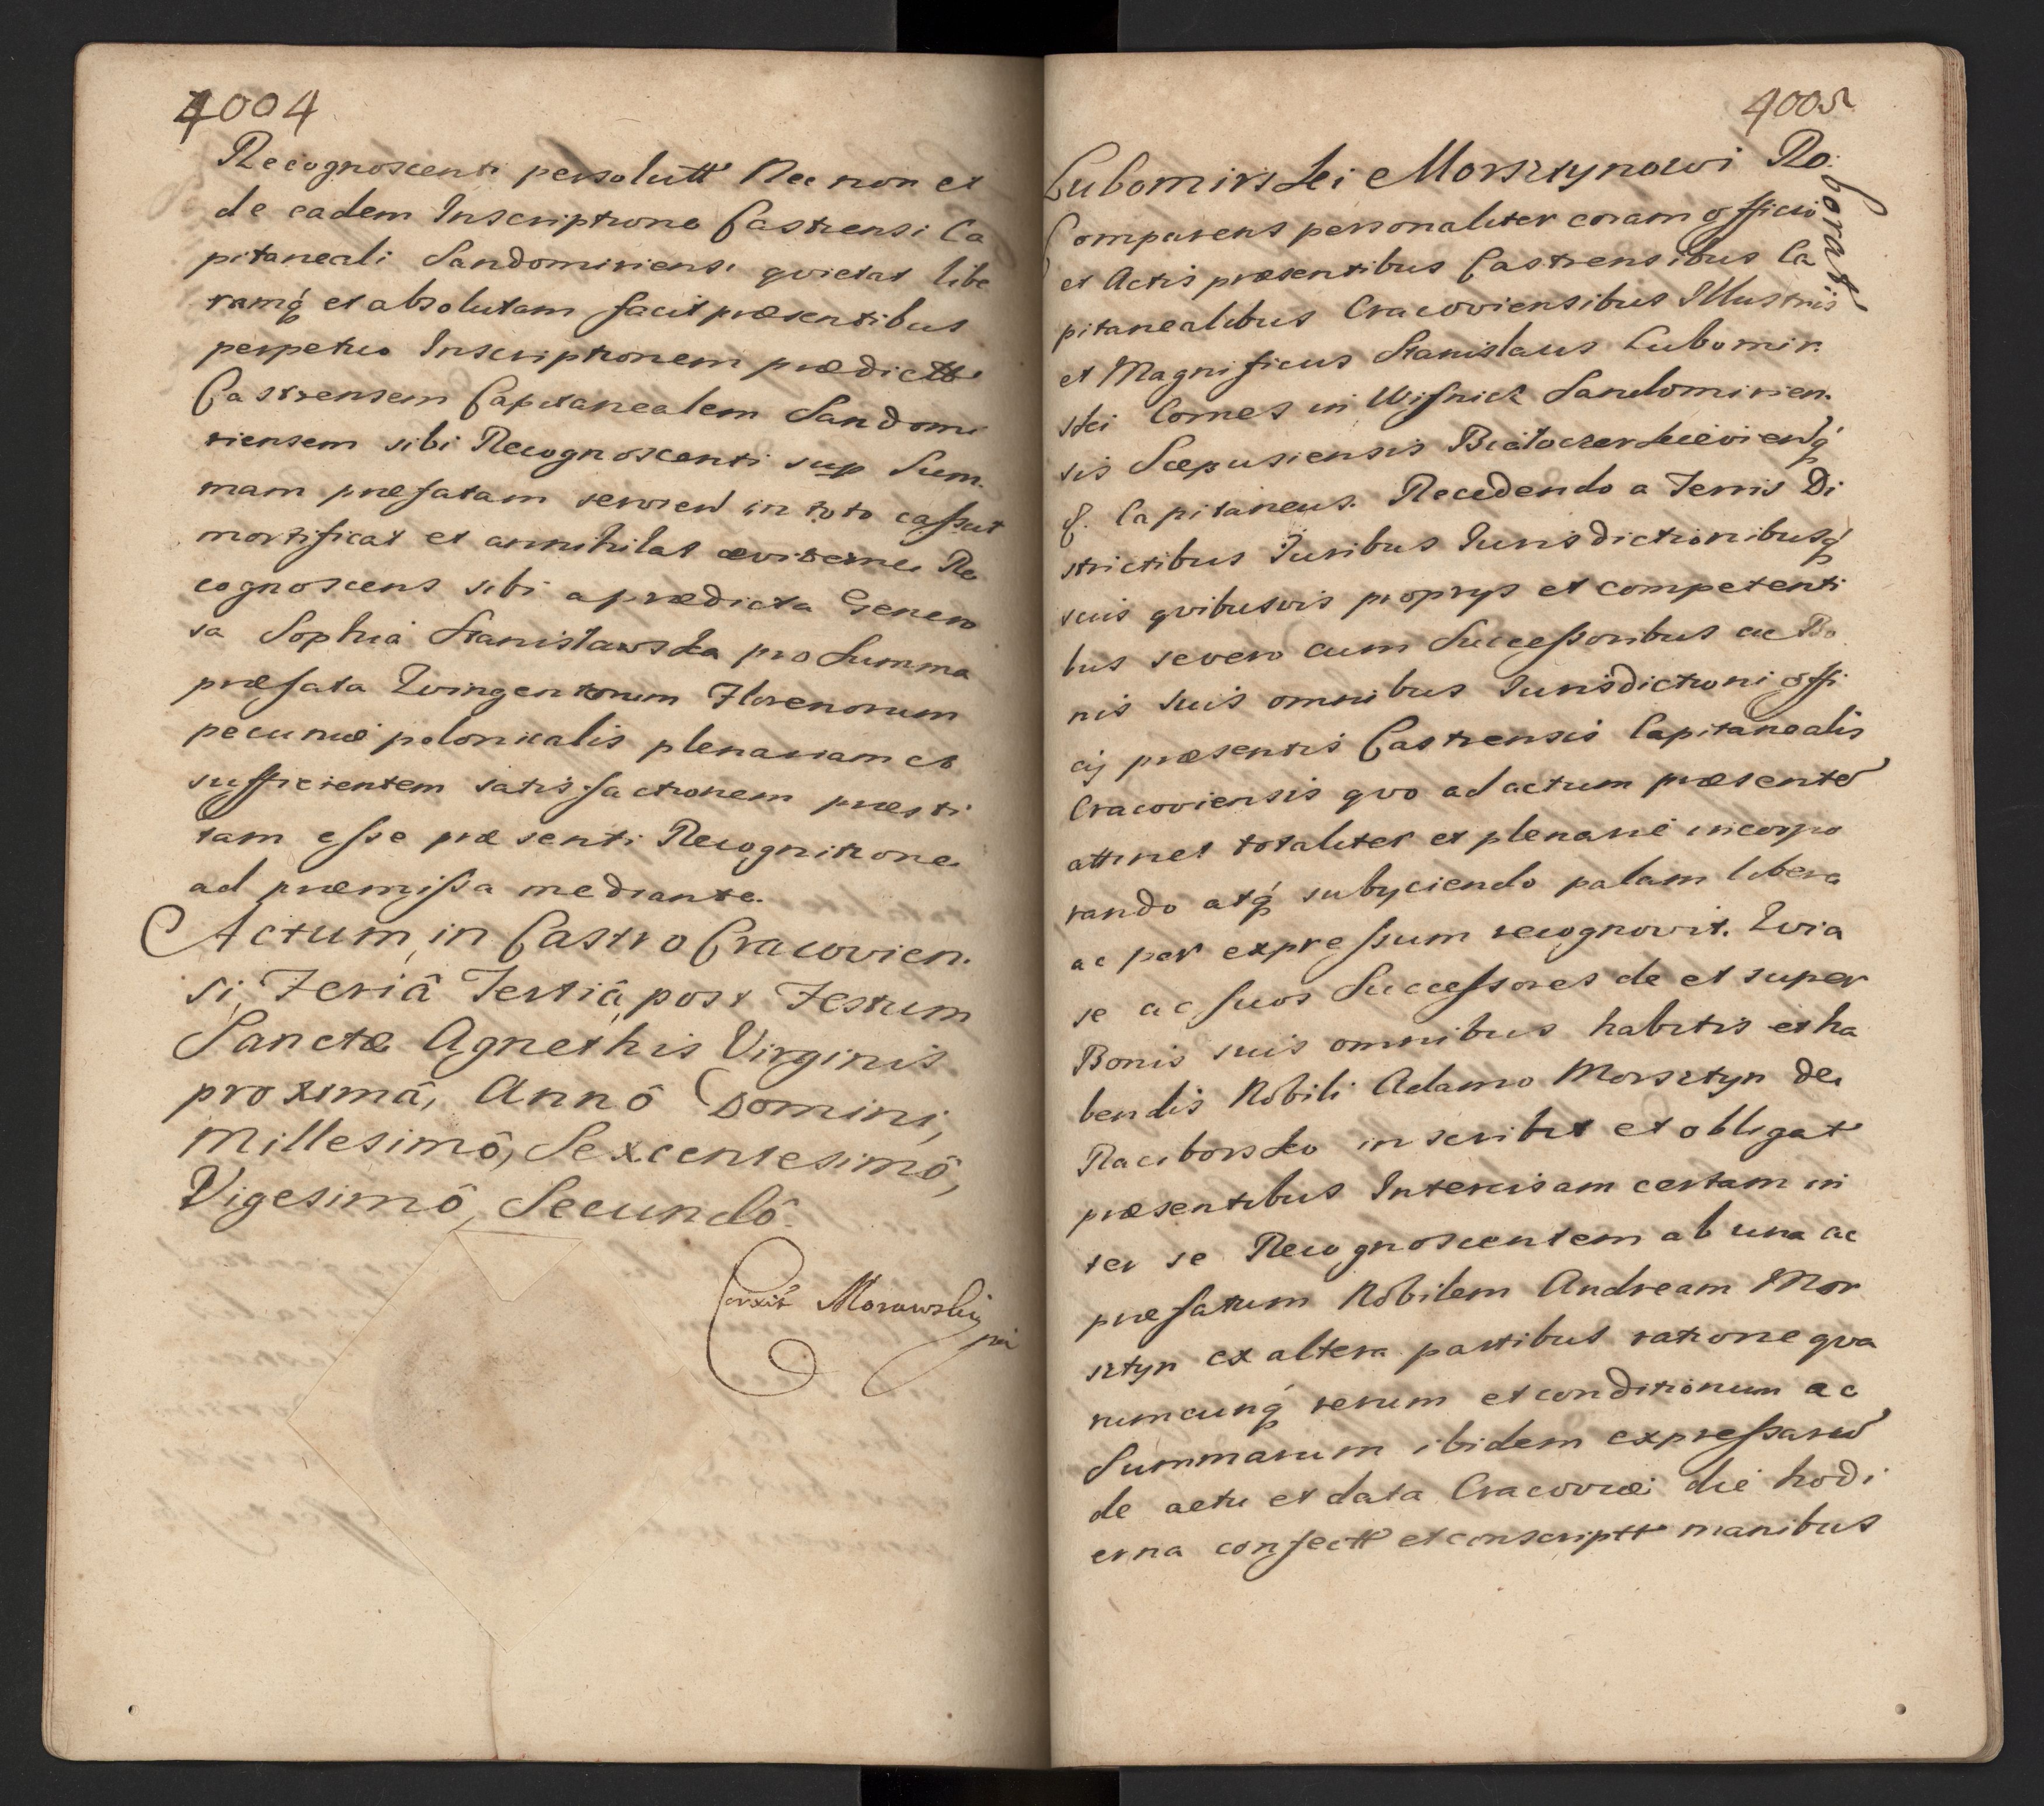 4004
Recognoscenti persolutt Nec non et
de eadem Inscriptione Castrensi Ca
pitaneali Sandomiriensi qvietat libe
ramq́ et absolutam facit præsentibus
perpetuo Inscriptionem prædictt
Castrensem Capitanealem Sandomi
riensem sibi Recognoscenti sup Sum
mam præfatam servien in toto cassat
mortificat et annihilat æviterne Re
cognoscens sibi a prædicta Genero
sa Sophia Stanisławska pro Summa
præfata Qvingentorum Florenorum
pecuniæ polonicalis plenariam et
sufficientem satisfactionem præsti
tam esse præsenti Recognitione
ad præmissa mediante.
Actum, in Castro Cracovien.
si, Feriâ Tertiâ, post Festum
Sanctæ Agnethis Virginis
proximâ, Annô Domini,
Millesimô, Sexcentesimô,
Vigesimô, Secundô.
Corxit Morawskij
4005
Lubomirski Morsztynowi Ro:
borat
Comparens personaliter coram officio
et Actis præsentibus Castrensibus Ca
pitanealibus Cracoviensibus Illustris
et Magnificus Stanislaus Lubomir.
ski Comes in Wisnicz Sandomirien.
sis Scepusiensis Białocerkieviensq́
&. Capitaneus. Recedendo a Terris Di
strictibus Juribus Jurisdictionibusq́
suis qvibusvis proprys et competenti
bus se vero cum Successoribus ac Bo
nis suis omnibus Jurisdictioni offi
cij præsentis Castrensis Capitanealis
Cracoviensis qvo ad actum præsente
attinet totaliter et plenarie incorpo
rando atq́ subyciendo palam libera
ac per expressum recognovit. Qvia
se ac suos Successores de et super
Bonis suis omnibus habitis et ha
bendis Nobili Adamo Morsztyn de
Raciborsko inscribit et obligat
præsentibus Intercisam certam in
ter se Recognoscentem ab una ac
præfatum Nobilem Andream Mor
sztyn ex altera partibus ratione qva
rumcunq́ rerum et conditionum ac
Summarum ibidem expressaru
de actu et data Cracoviæ die hodi
erna confectt et conscriptt manibus